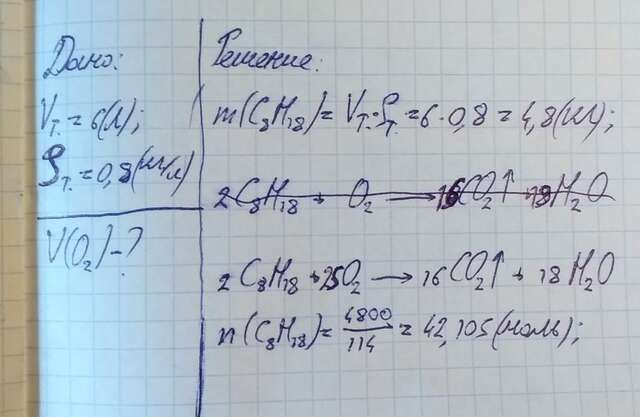 Дано:
Vт. = 6(л);
ρт. = 0,8(кг/л)
V(O₂)-?
Решение:
m(C₈H₁₈) = Vт.·ρт. = 6·0,8 = 4,8(кг);
2 C₈H₁₈ + O₂ → 16CO₂↑ + 18H₂O
2 C₈H₁₈ + 25O₂ → 16CO₂↑ + 18H₂O
n(C₈H₁₈) = 4800/114 = 42,105(моль);